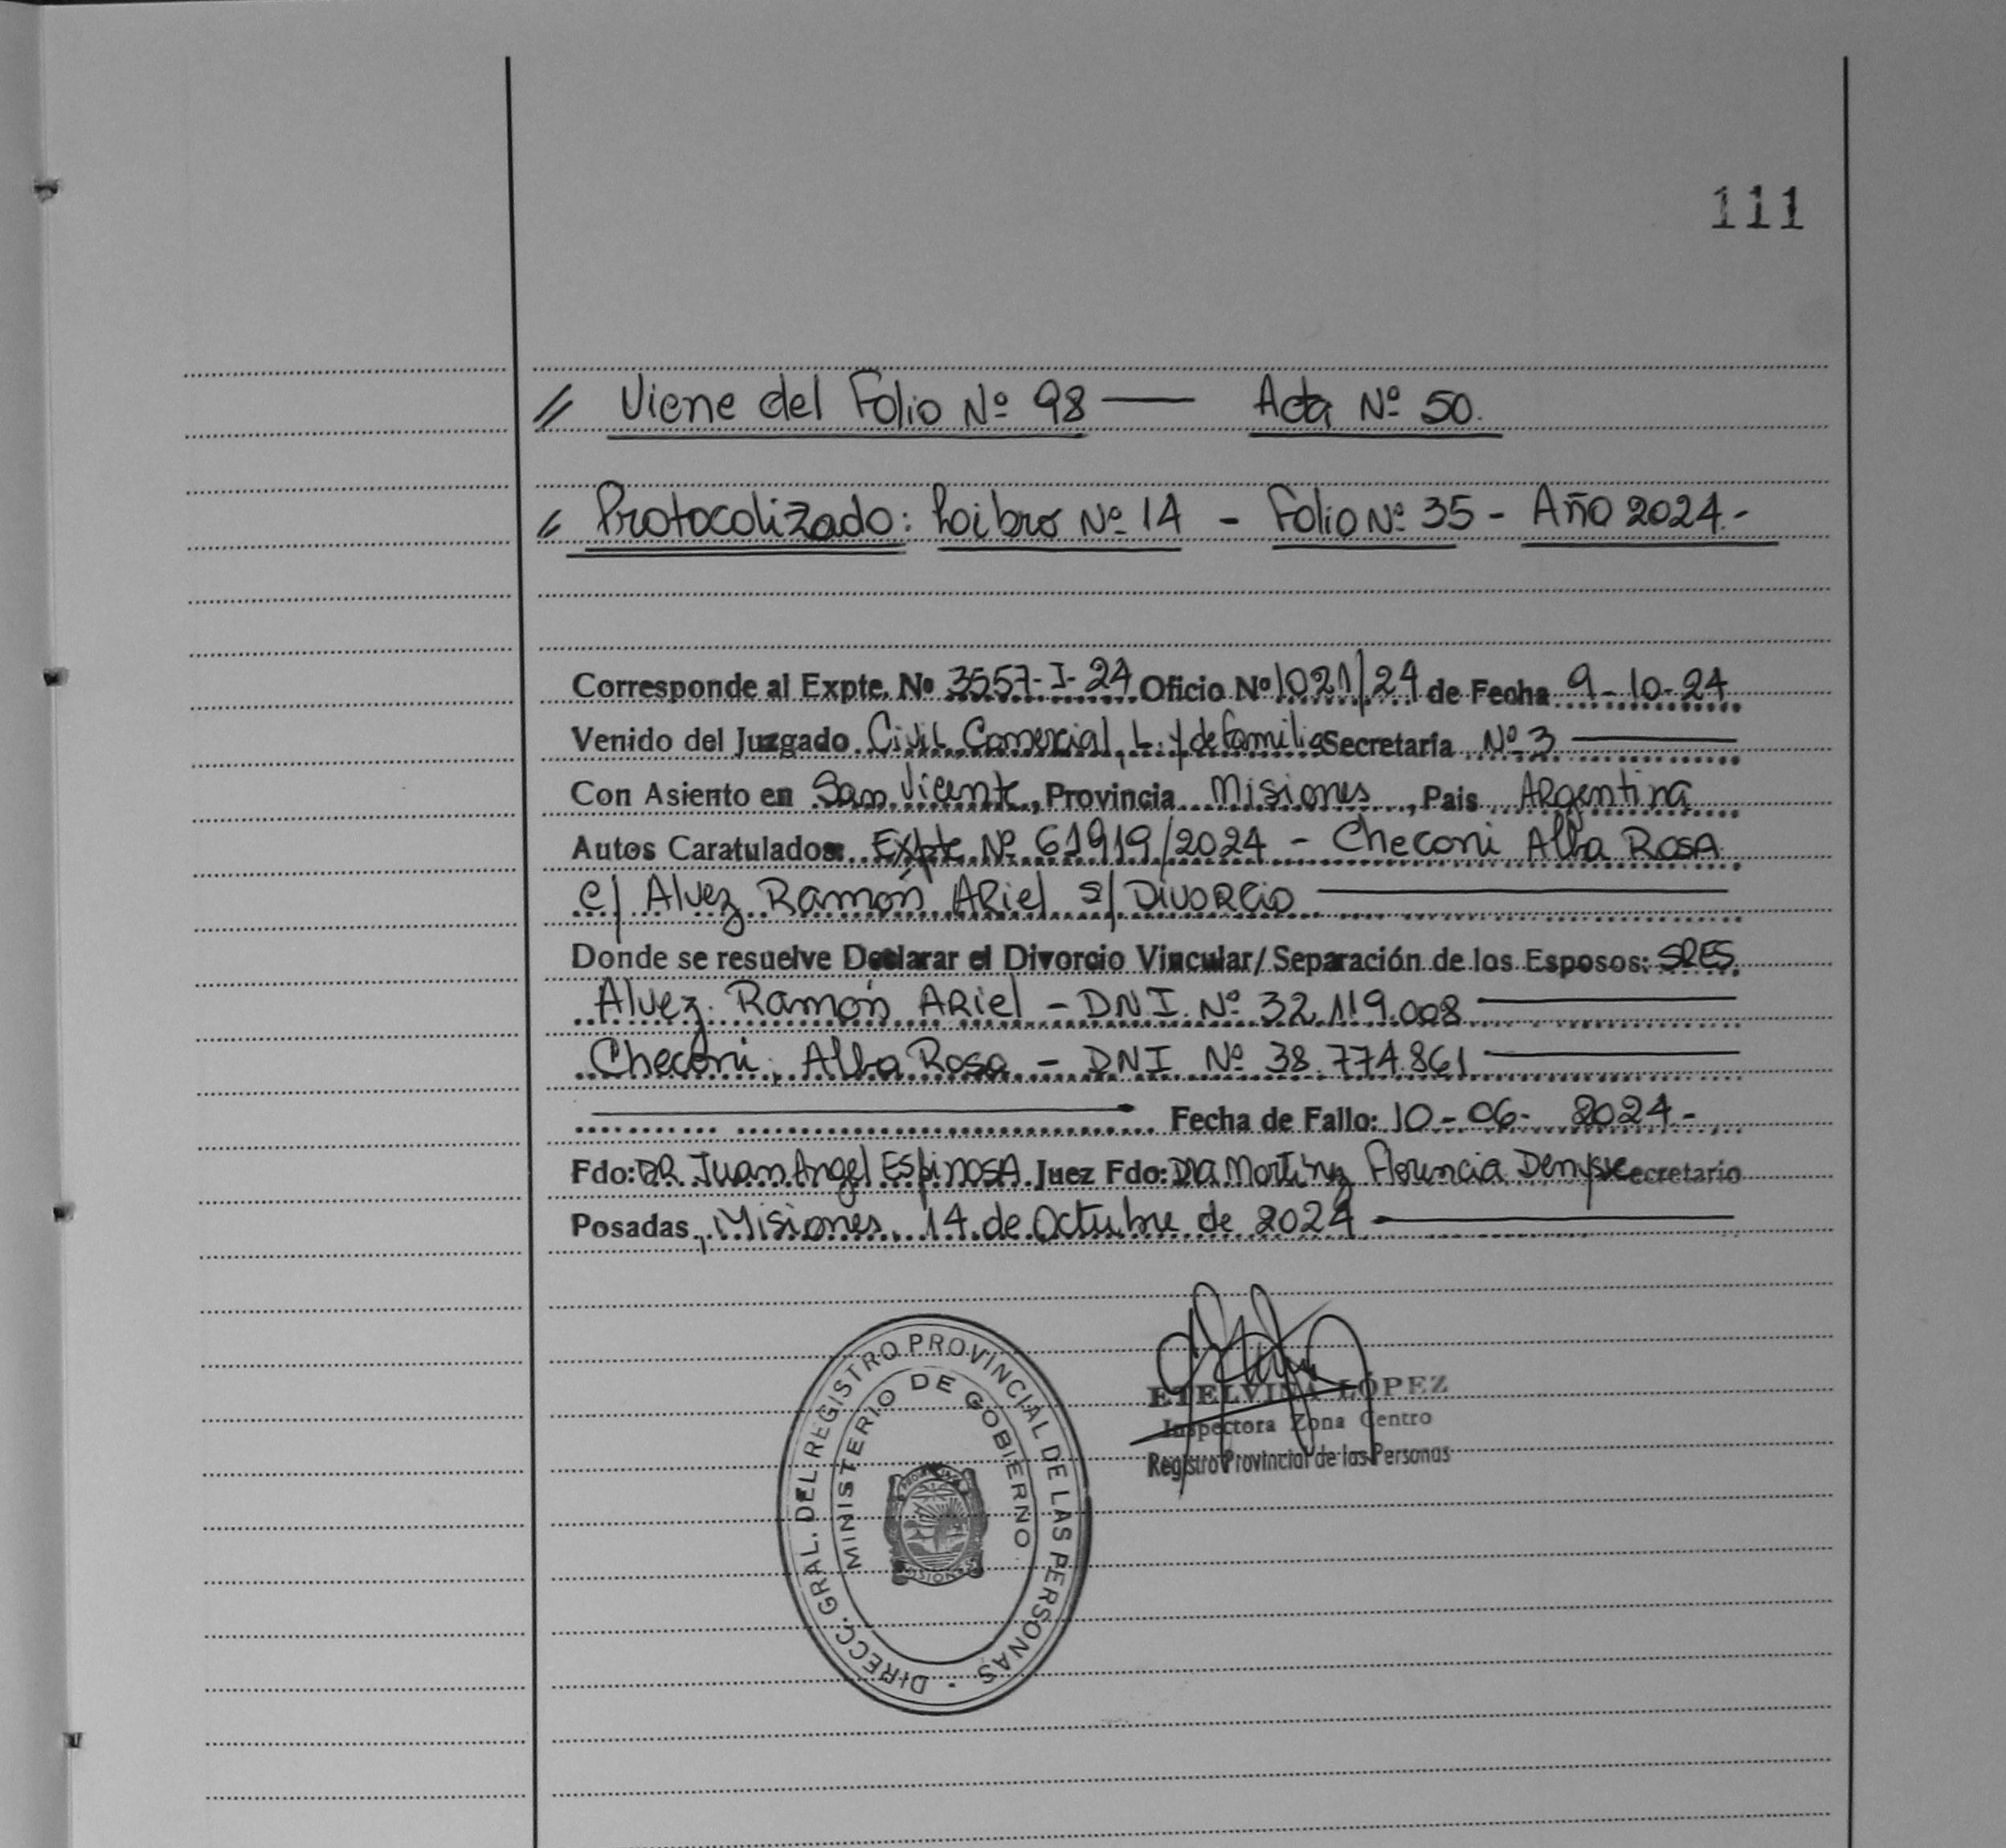 111
// Viene del Folio Nº 98 — Acta Nº 50.
// Protocolizado: Libro Nº 14 - Folio Nº 35 - Año 2024.-
Corresponde al Expte. Nº 3557-I-24 Oficio Nº 1021/24 de Fecha 9-10-24
Venido del Juzgado Civil, Comercial, L. y de familia Secretaría Nº 3
Con Asiento en San Vicente, Provincia Misiones, Pais Argentina
Autos Caratulados: Expte Nº 61919/2024 - Checoni Alba Rosa
c/ Alvez Ramón Ariel s/ Divorcio
Donde se resuelve Declarar el Divorcio Vincular/Separación de los Esposos: SRES.
Alvez Ramón Ariel - DNI. Nº 32.119.008
Checoni, Alba Rosa - DNI Nº 38.774.861
Fecha de Fallo: 10-06- 2024.-
Fdo: DR. Juan Angel Espinosa Juez Fdo: Dra Martinez Florencia Denyse Secretario
Posadas, Misiones, 14 de Octubre de 2024
DIRECC. GRAL. DEL REGISTRO PROVINCIAL DE LAS PERSONAS
MINISTERIO DE GOBIERNO
ETELVINA LÓPEZ
Inspectora Zona Centro
Registro Provincial de las Personas